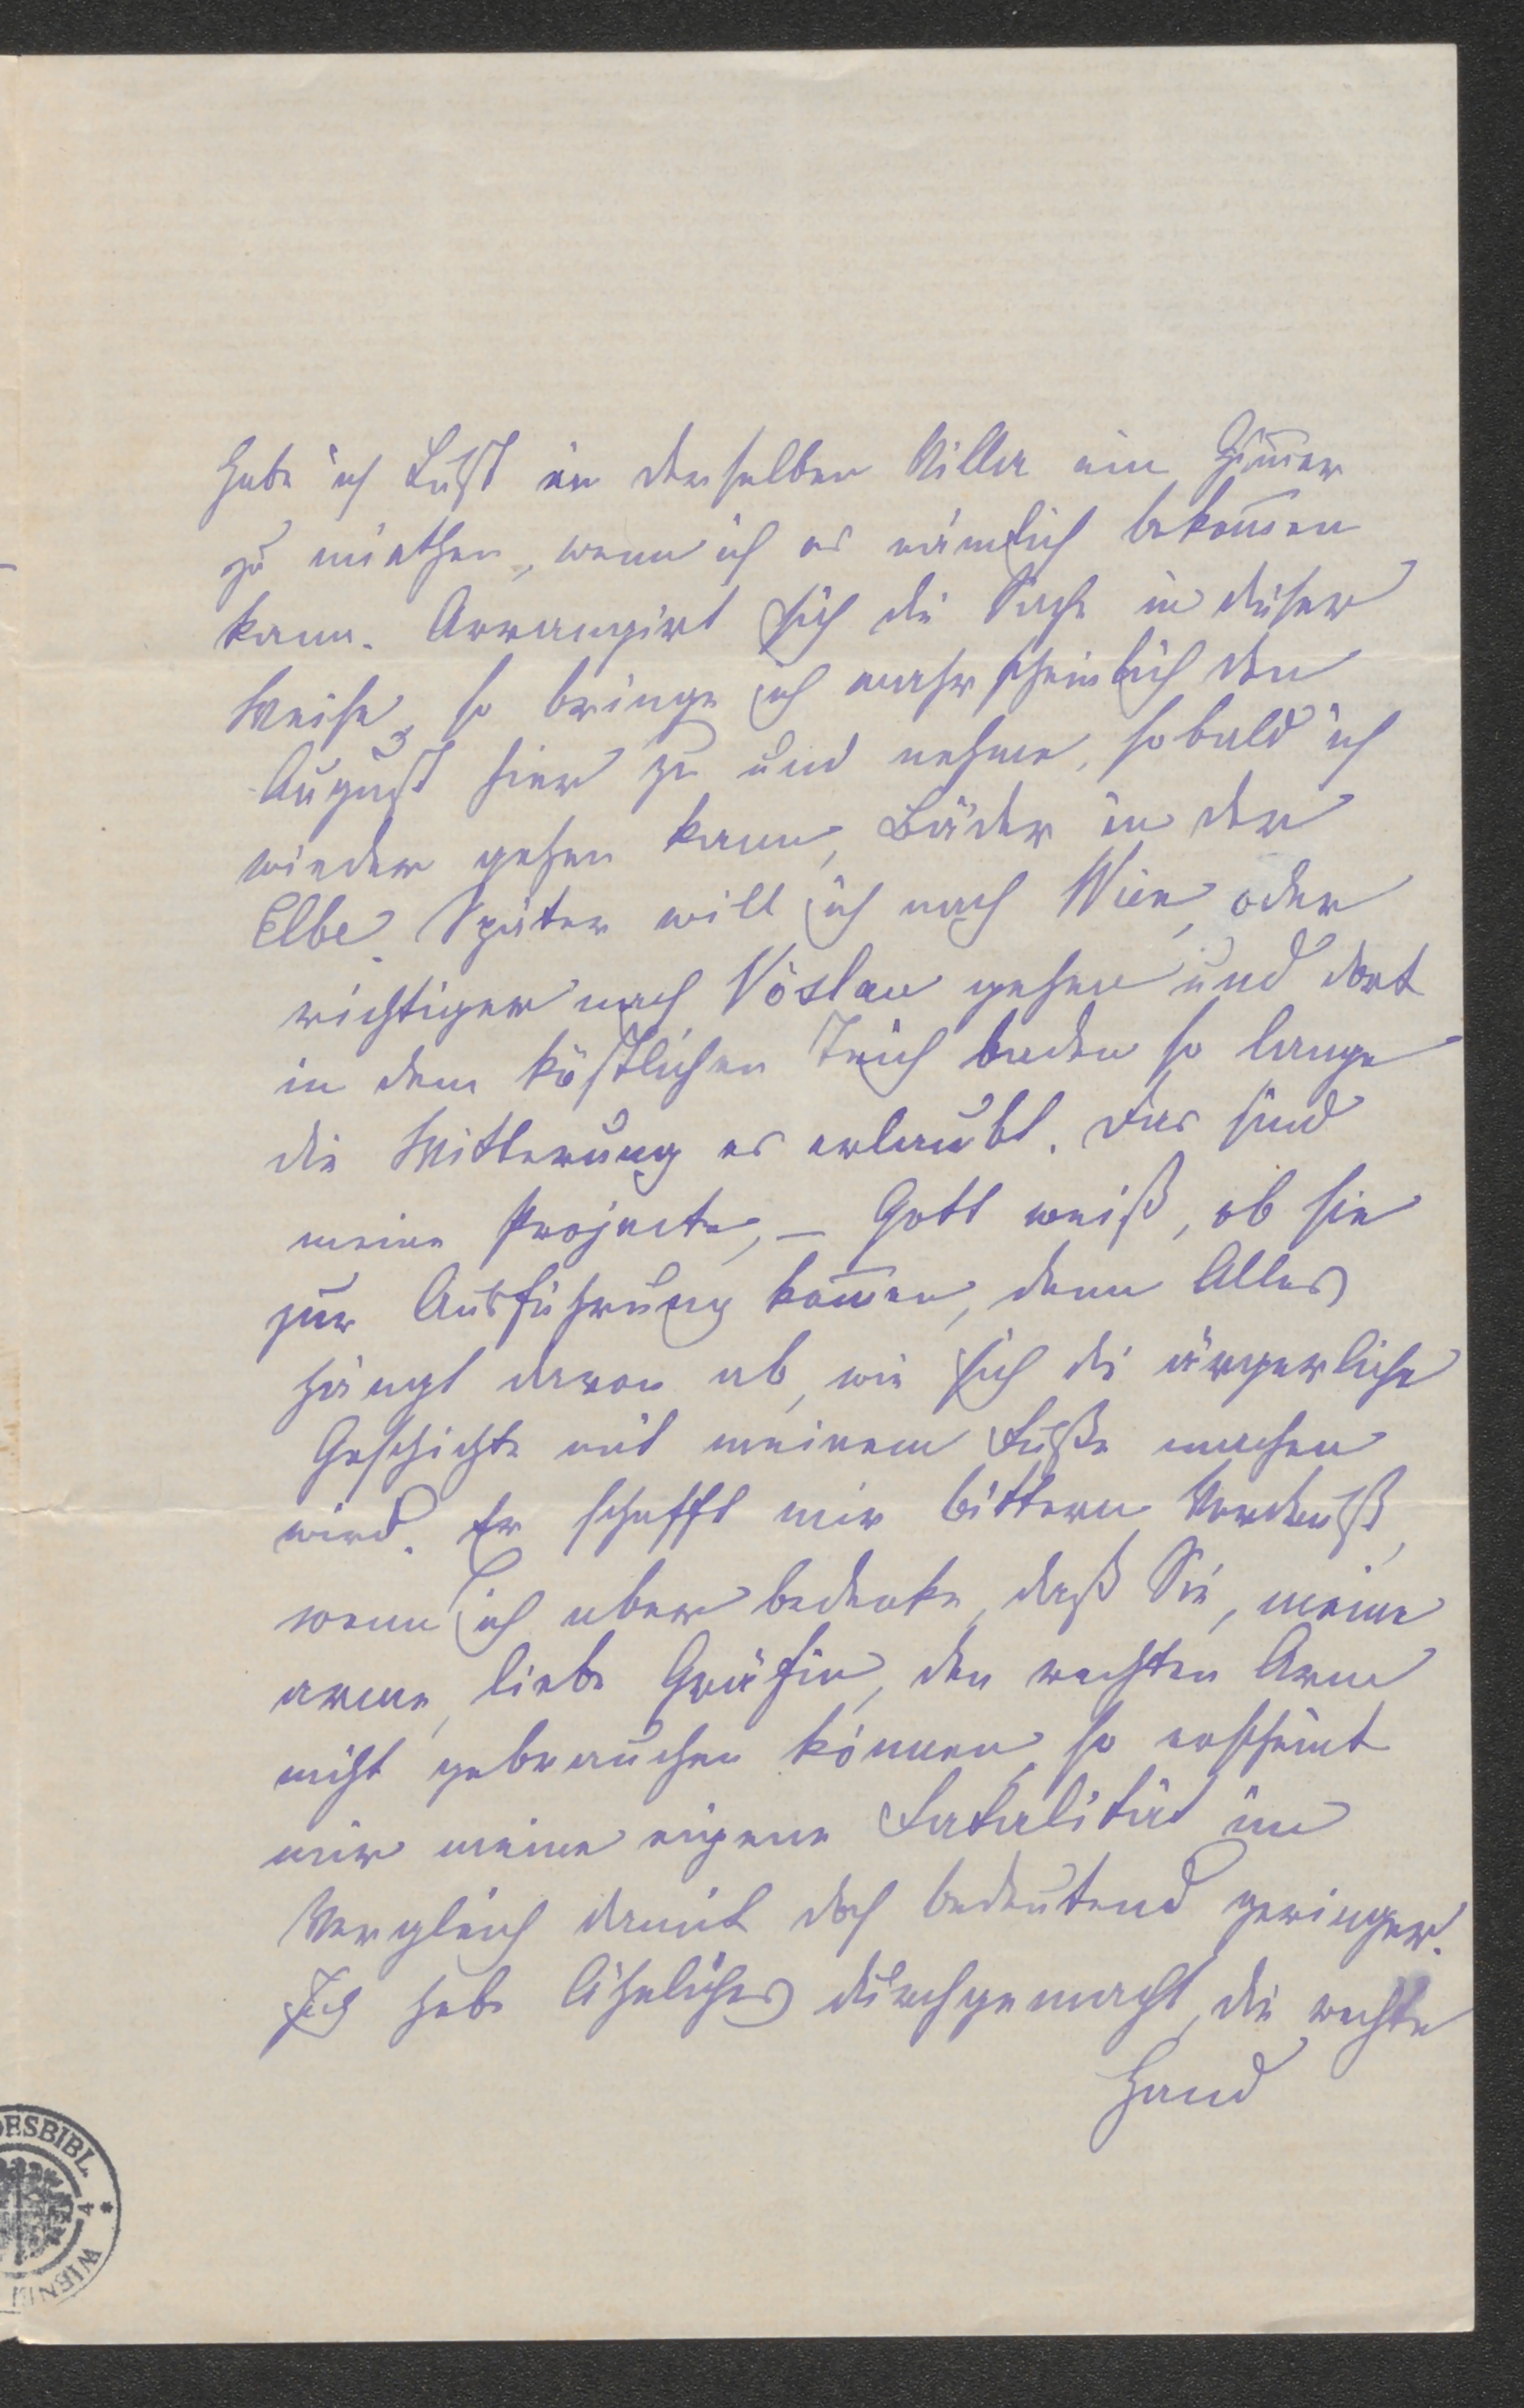 habe ich Lust in derselben Villa ein Zim̄er
zu miethen, wenn ich es nämlich bekom̄en
kann. Arrangirt sich die Sache in dieser
Weise, so bringe ich wahrscheinlich den
August hier zu und nehme, sobald ich
wieder gehen kann, Bäder in der
Elbe. Später will ich nach Wien, oder
richtiger nach Vöslau gehen und dort
in dem köstlichen Teich baden so lange
die Witterung es erlaubt. Das sind
meine Projecte, – Gott weiß, ob sie
zur Ausführung kom̄en, denn Alles
hängt davon ab, wie sich die ärgerliche
Geschichte mit meinem Fuße machen
wird. Er schafft mir bittern Verdruß,
wenn ich aber bedenke, daß Sie, meine
arme, liebe Gräfin, den rechten Arm
nicht gebrauchen können, so erscheint
mir meine eigene Fatalität im
Vergleich damit doch bedeutend geringer.
Ich habe Ähnliches durchgemacht, die rechte
Hand
DESBIBL. * WIEN